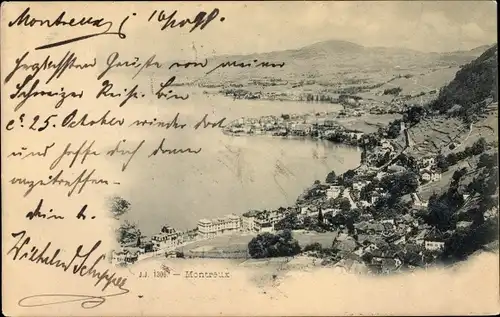 Montreux, 16/10 99.
Herzlichsten Grüsse von meiner
Schweizer Reise, bin
c. 25. October wieder dort
und hoffe dich dann
anzutreffen
dein b.
Wilhelm
J.J. 1386 — Montreux